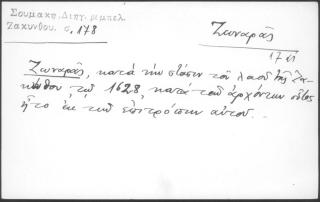 Σουμάκη, Διηγ. ρεμπελ.
Ζακύνθου. σ. 178
Ζωναρᾶς
Ζωναρᾶς, κατὰ τὴν στάσιν τοῦ λαοῦ τῆς Ζα-
κύνθου τοῦ 1628, κατὰ τῶν ἀρχόντων οὗτος
ἦτο ἐκ τῶν ἐπιτρόπων αὐτοῦ.